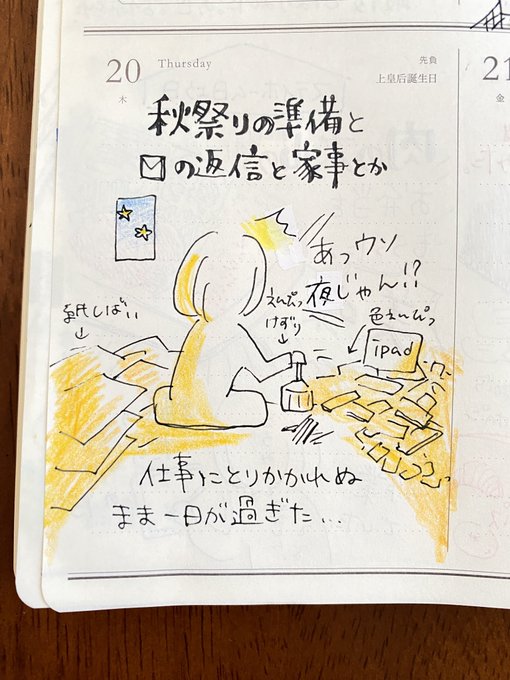 20 Thursday
木
先負
上皇后誕生日
21
金
秋祭りの準備と
✉の返信と家事とか
あっウソ
夜じゃん!?
紙しばい
えんぴつ
けずり
色えんぴつ
ipad
仕事にとりかかれぬ
まま一日が過ぎた...